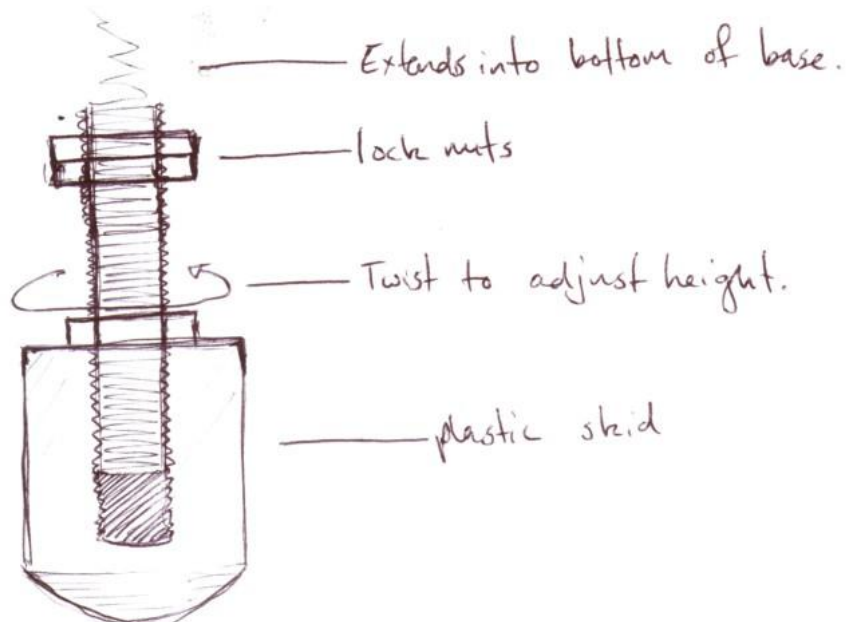 Extends into bottom of base.
lock nuts
Twist to adjust height.
plastic skid